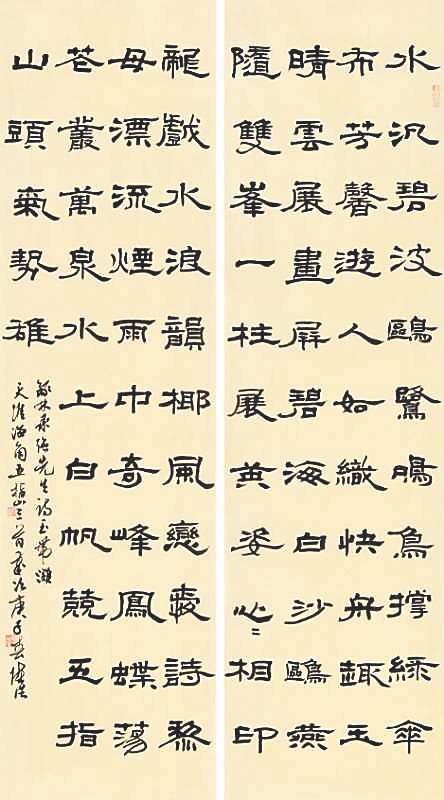 水汎碧波鷗鷺鳴鳥撐綠傘
布芳馨遊人如織快舟趣玉
晴雲展畫屏碧海白沙鷗燕
隨雙峯一柱展英姿心〻相印
龍戲水浪韻椰風戀愛詩黎
母漂流煙雨中奇峰鳳蝶蕩
花叢萬泉水上白帆競五指
山頭氣勢雄
林先生詩玉帶灘
天涯海角五指山三首歲次庚子